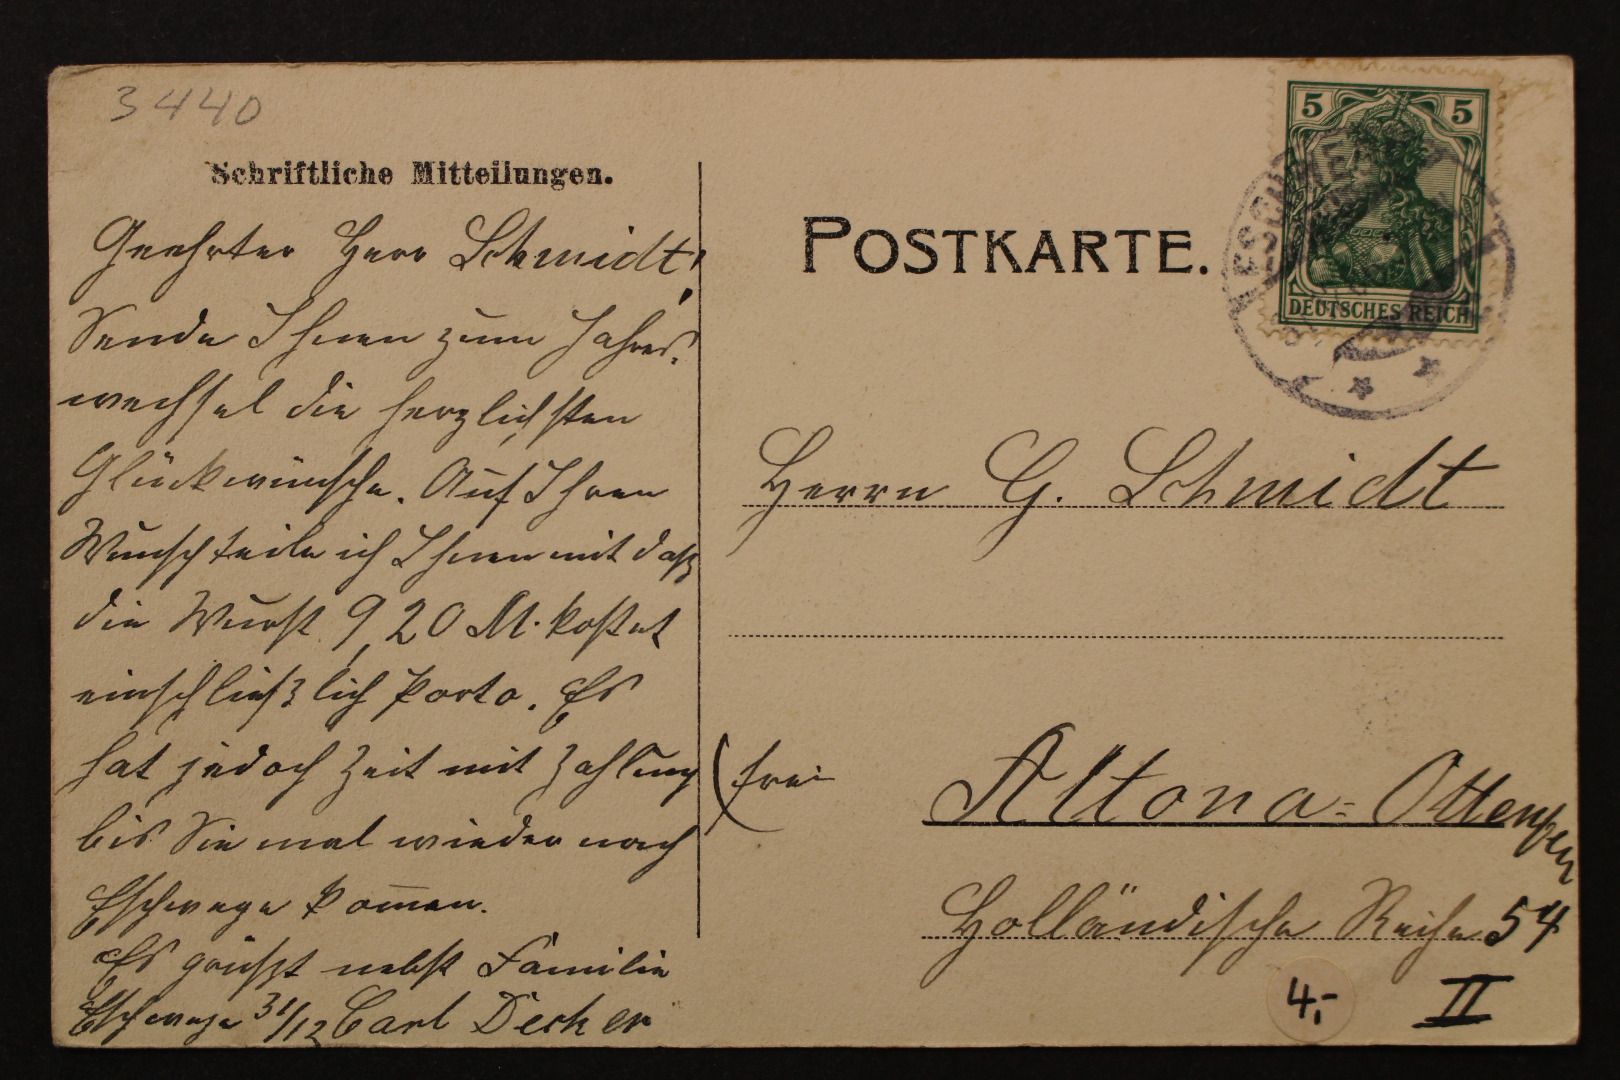 3440
Schriftliche Mitteilungen.
Geehrter Herr Schmidt!
Sende Ihnen zum Jahres-
wechsel die herzlichsten
Glückwünsche. Auf Ihren
Wunsch teile ich Ihnen mit daß
die Wurst 9,20 M. kostet
einschließlich Porto. Es
hat jedoch Zeit mit Zahlung
bis Sie mal wieder nach
Eschwege kom̅en.
Es grüßt nebst Familie
Eschwege 31/12 Carl Decker
POSTKARTE.
5 5
DEUTSCHES REICH
ESCHWEGE
Herrn G. Schmidt
(frei
Altona-Ottensen
Holländische Reihe 54
II
4,-